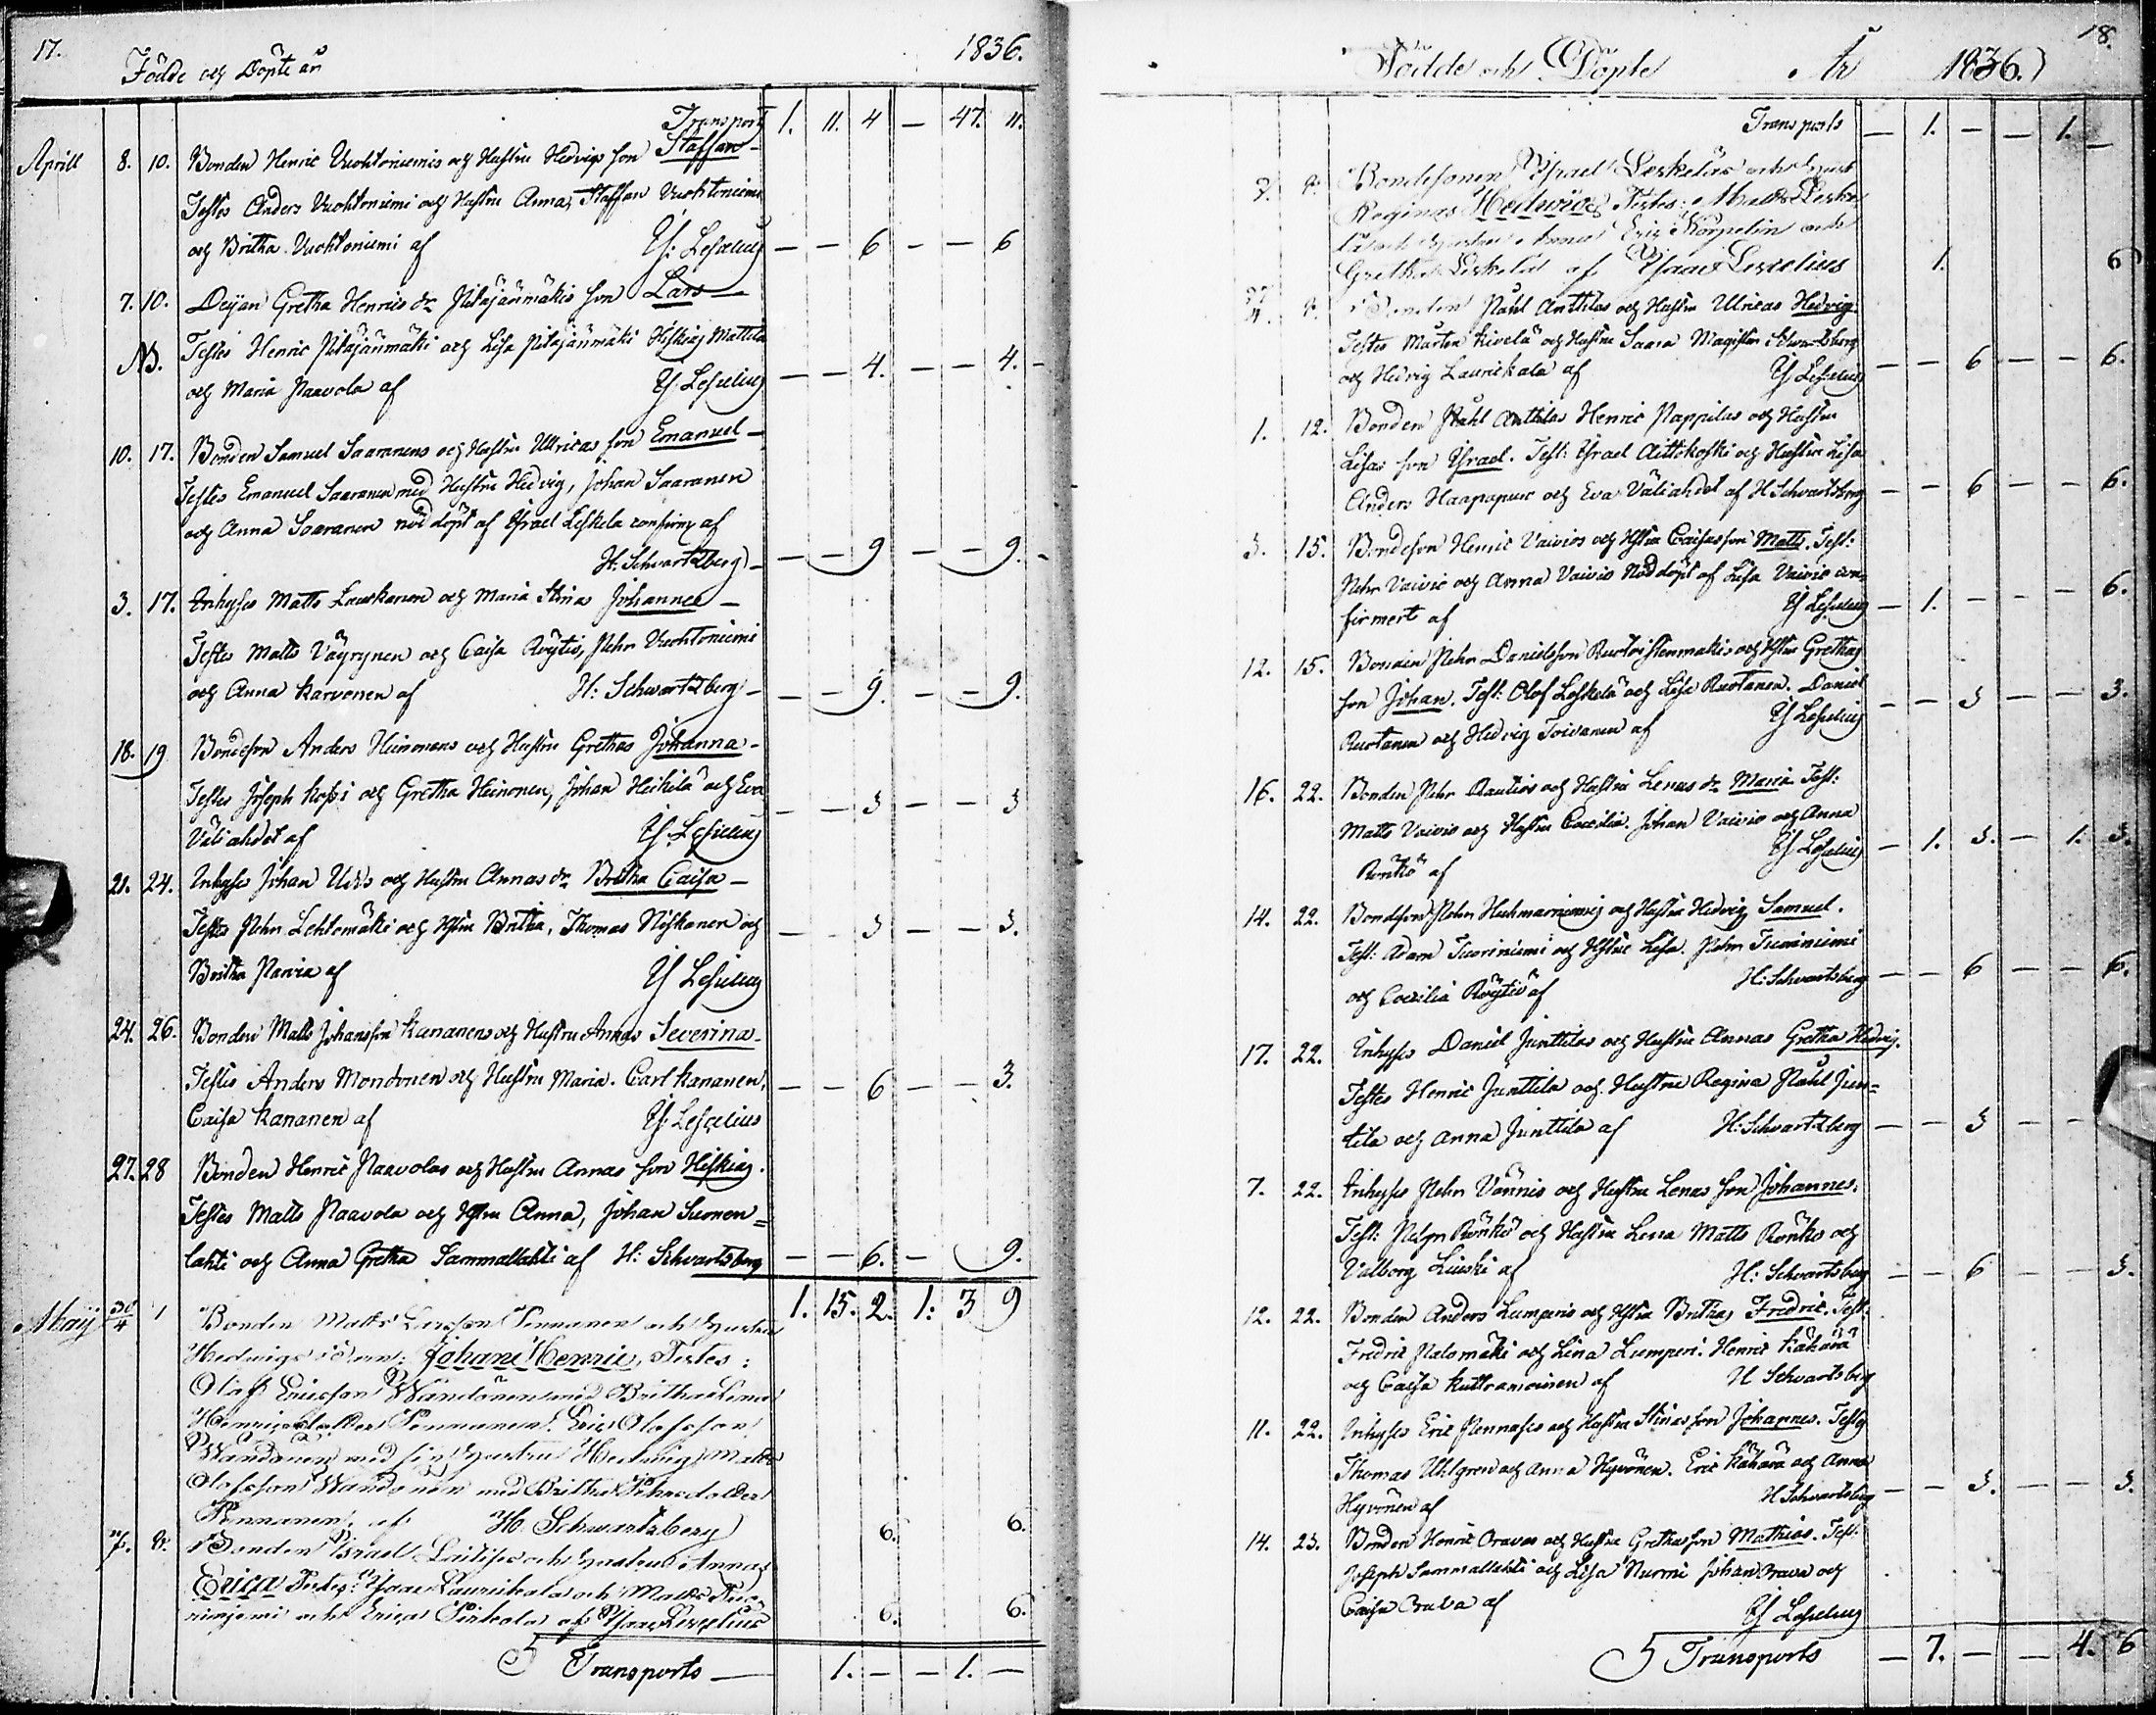 17.
Födde och Döpte år 1836.
Transport 1. 11. 4 — 47. 11.
Aprill 8. 10. Bonden Henric Vuohtoniemis och Hustru Hedvigs son Staffan —
Testes Anders Vuohtoniemi och Hustru Anna, Staffan Vuohtoniemi
och Britha Vuohtoniemi af — — 6 — — 6
7. 10. Gretha Henrics dr Pitäjänmäkis son Lars —
NB. Testes Henric Pitäjänmäki och Lisa Pitäjänmäki Hiskias Mattila
och Maria Paavola af — — 4. — — 4. -
10. 17. Bonden Samuel Saaranens och Hustru Ulricas son Emanuel —
Testes Emanuel Saaranen med Hustru Hedvig, Johan Saaranen
och Anna Saaranen nöddöpt af Israel Leskela af
H: Schvartzberg — — — 9 — — 9. -
3. 17. Inhyses Matts Laukkanen och Maria Stinas Johannes —
Testes Matts Väyrynen och Caisa Röytiö, Pehr Vuohtoniemi
och Anna Karvonen af H: Schwartzberg — — — 9. — — 9.
18. 19 Bondeson Anders Heinonens och Hustru Grethas Johanna —
Testes Joseph och Gretha Heinonen, Johan Heikilä och Eva
Väliahdet af — — 3 — — 3
21. 24. Inhyses Johan och Hustru Annas dr Britha Caisa —
Testes Pehr Lehtomäki och Hstru Britha, Thomas Niskanen och — — 3 — — 3.
Britha af
24. 26. Bonden Matts Johansson Kananens och Hustru Annas Severina —
Testes Anders Mondonen och Hustru Maria. Carl Kananen, — — 6 — — 3.
Caisa Kananen af
27. 28 Bonden Henric Paavolas och Hustru Annas son Hiskias.
Testes Matts Paavola och Hstru Anna, Johan Suonen=
lahti och Anna Gretha Sammallahti af H: Schvartsberg — — 6. — 9.
1. 15. 2. 1: 3 9
Maij 30/4 1 Bonden Matts Larsson Pennanen och Hustru
Hedvigs son: Johan Henric, Testes:
Olof Ericsson Wändönen med Britha Lena
Henricsdotter Pennanen. Eric Olofsson
Wändönen med sin Hustru Hedvig, Matts
Olofsson Wändönen med Britha Pehrsdotter
Pennanen, af H. Schwartzberg 6. 6.
7. 8. Bonden Israel och Hustru Annas
Erica Testes: Isaac Laurikala och Matts
och Erica Pirkola af Isaac 6. 6.
Transports — 1. — — 1. —
18.
Födde och Döpte År 1836.
Transports — 1. — — 1. —
8. Bondesonen Israel Leskeläs och Hust
Reginas Hedwig Testes: Matts Leske
lä och Hustru Anna Eric och
Gretha Leskelä af Isaac 1. 6
8. Bonden Påhl Anttilas och Hustru Ulricas Hedvig
Testes Mårten Kivelä och Hustru Saara Magister Schwartzberg
och Hedvig Laurikala af — — 6 — — 6.
1. 12. Bonden Påhl Anttilas Henric Pappilas och Hustru
Lisas son Israel. Test: Israel Aittokoski och Hustru Lisa
Anders Haapapuro och Eva Väliahdet af H Schvartsberg — — 6 — — 6.
3. 15. Bondeson Henric Vaiviös och Hstru Caisas son Matts. Test:
Pehr Vaivio och Anna Vaivio Nöddöpt af Lisa Vaivio con=
firmert af — 1. — — — 6.
12. 15. Bonden Pehr Danielsson och Hstru Grethas
son Johan. Test: Olof Leskelä och Lisa Ruotanen. Daniel
Ruotanen och Hedvig Toivanen af — — 3 — — 3.
16. 22. Bonden Pehr Rautios och Hustru Lenas dr Maria Test:
Matts Vaivio och Hustru Caecilia. Johan Vaivio och Anna
Rönkö af — 1. 3. — 1. 3.
14. 22. Bondeson Pehr Huhmarniemis och Hustru Hedvigs Samuel.
Test: Adam Tuoriniemi och Hstru Lisa. Pehr Tuoriniemi
och Caecilia Röytiö af H: Schvartsberg — — 6 — — 6.
17. 22. Inhyses Daniel Junttilas och Hustru Annas Gretha Hedvig.
Testes Henric Junttila och Hustru Regina Påhl Jun=
tila och Anna Junttila af H: Schvartzberg — — 3 — —
7. 22. Inhyses Pehr Vännis och Hustru Lenas son Johannes.
Test: Rönkö och Hustru Lena Matts Rönkö och
Valborg af H: Schvartsberg — — 6 — — 3.
12. 22. Bonden Anders Lumperis och Hstru Brithas Fredric. Test:
Fredric Palomäki och Lena Lumperi. Henric Kähärä
och Caisa af H Schvartsberg
11. 22. Inhyses Eric Pennases och Hustru Stinas son Johannes. Testes
Thomas Uhlgren och Anna Hyvönen. Eric Kähärä och Anna
Hyvönen af H Schvartsberg — — 3. — — 3.
14. 23. Bonden Henric Oravas och Hustru Grethas son Mathias. Test:
Joseph Sammallahti och Lisa Nurmi Johan Orava och
Caisa Orava af
Transports — 7. — — 4. 6